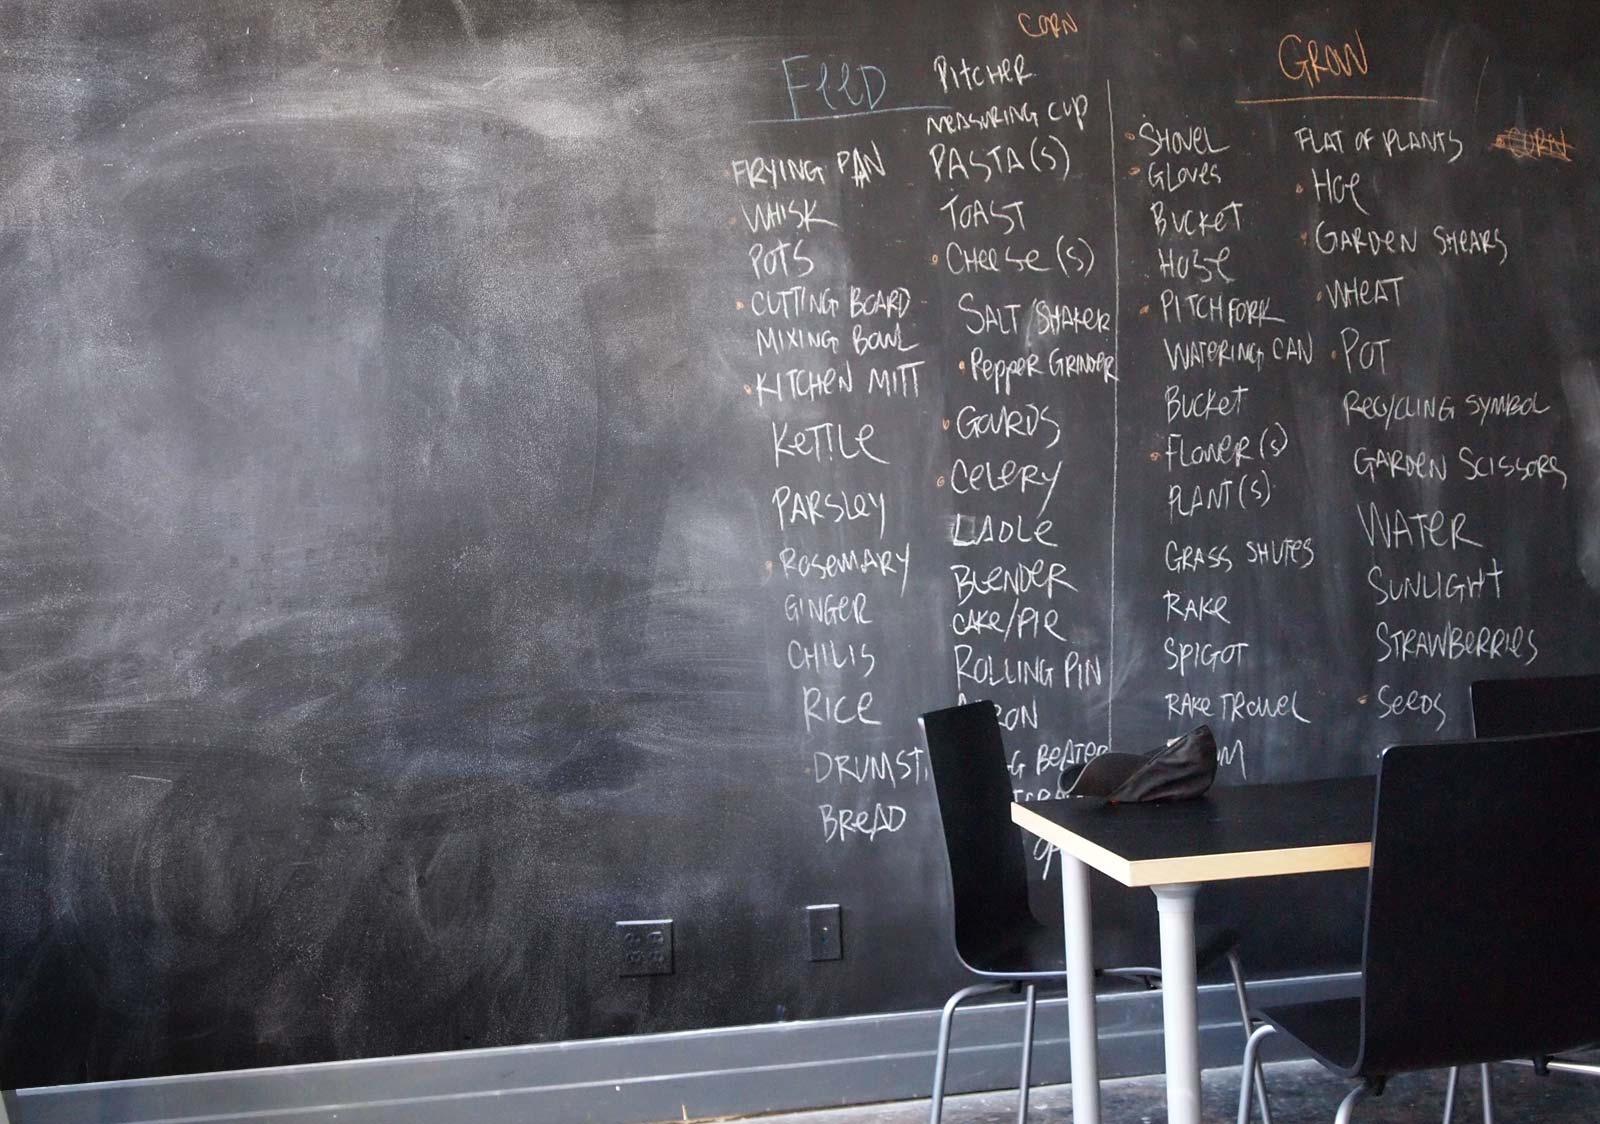 FEED
FRYING PAN
WHISK
POTS
CUTTING BOARD
MIXING BOWL
KITCHEN MITT
KETTLE
PARSLEY
ROSEMARY
GINGER
CHILIS
RICE
DRUMST
BREAD
CORN
PITCHER
MEASURING CUP
PASTA(S)
TOAST
CHEESE(S)
SALT/SHAKER
PEPPER GRINDER
GOURDS
CELERY
LADLE
BLENDER
CAKE/PIE
ROLLING PIN
RON
G BEATER
GROW
SHOVEL
GLOVES
BUCKET
HOSE
PITCHFORK
WATERING CAN
BUCKET
FLOWER(S)
PLANT(S)
GRASS
RAKE
SPIGOT
RAKE TROWEL
M
FLAT OF PLANTS
CORN
HOE
GARDEN SHEARS
WHEAT
POT
RECYCLING SYMBOL
GARDEN SCISSORS
WATER
SUNLIGHT
STRAWBERRIES
SEEDS